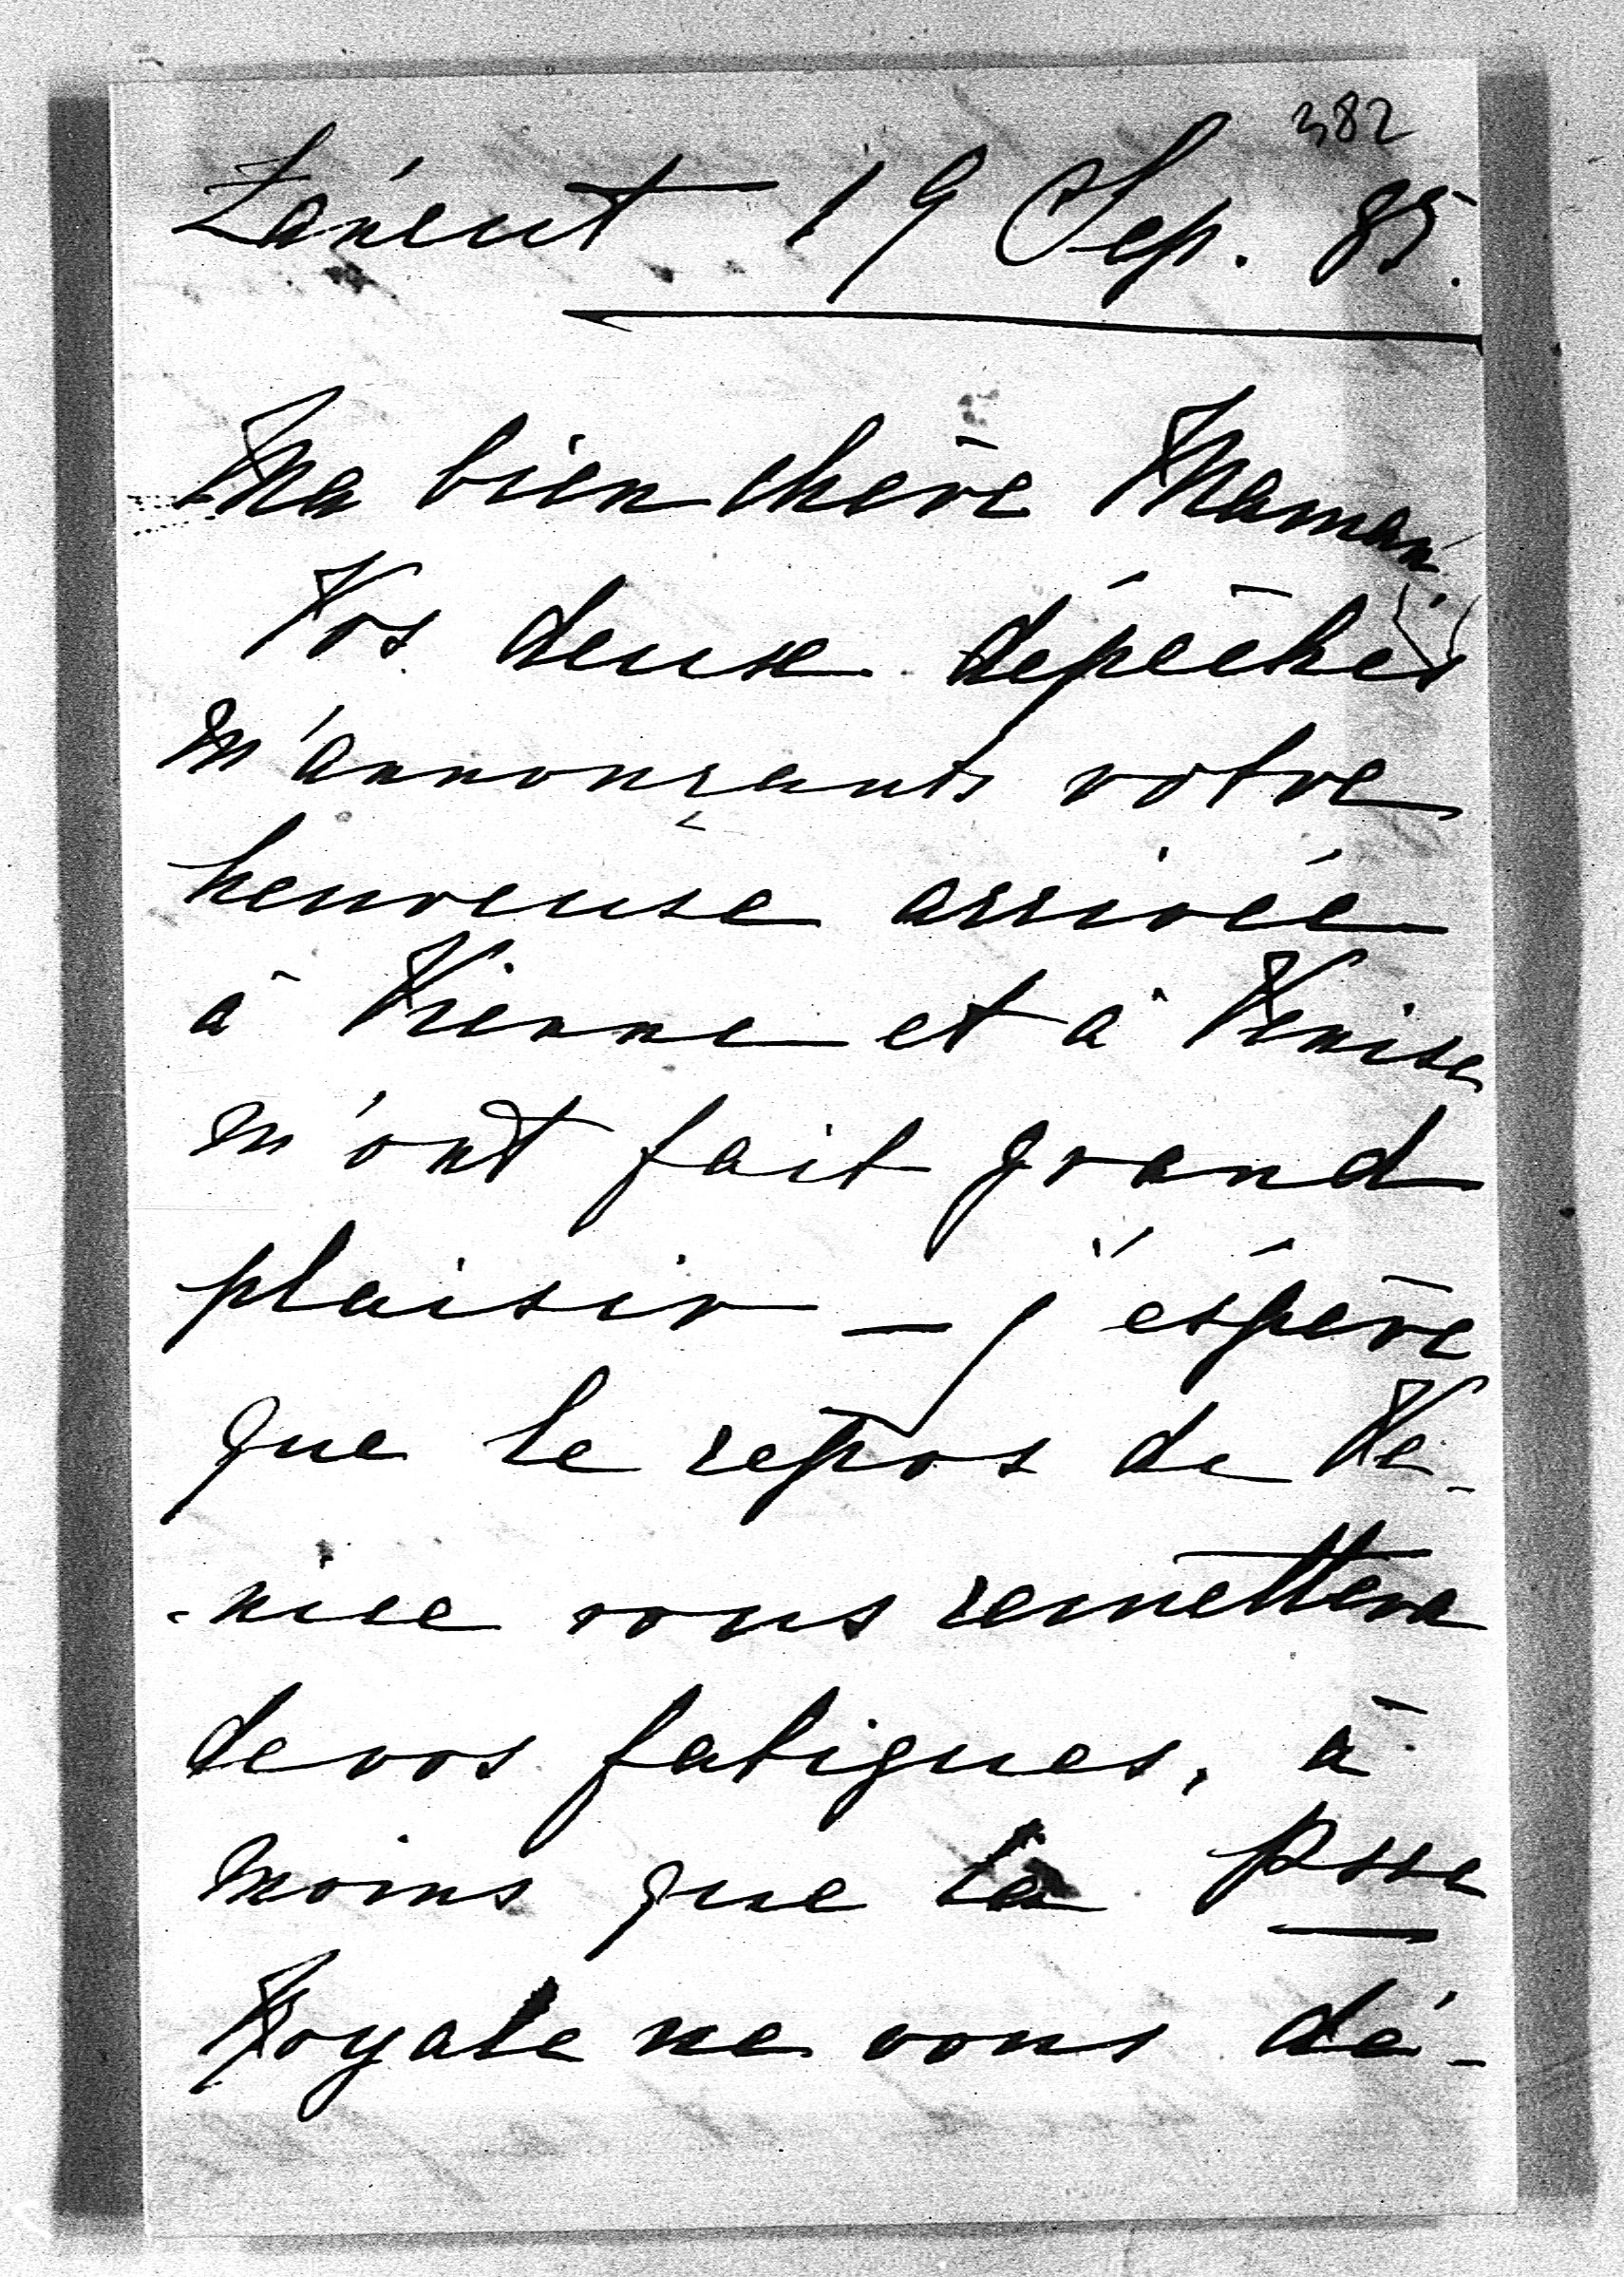 382
Láneut 19 Sep. 85.
Ma bien chère Maman!
Vos deux dépêches
m'annonçants votre
heureuse arrivée
à Vienne et à Venise
m'ont fait grand
plaisir _ j'éspère
que le repos de Ve-
-nise vous remettera
de vos fatigues, à
moins que la Psse
Royale ne vous dé-